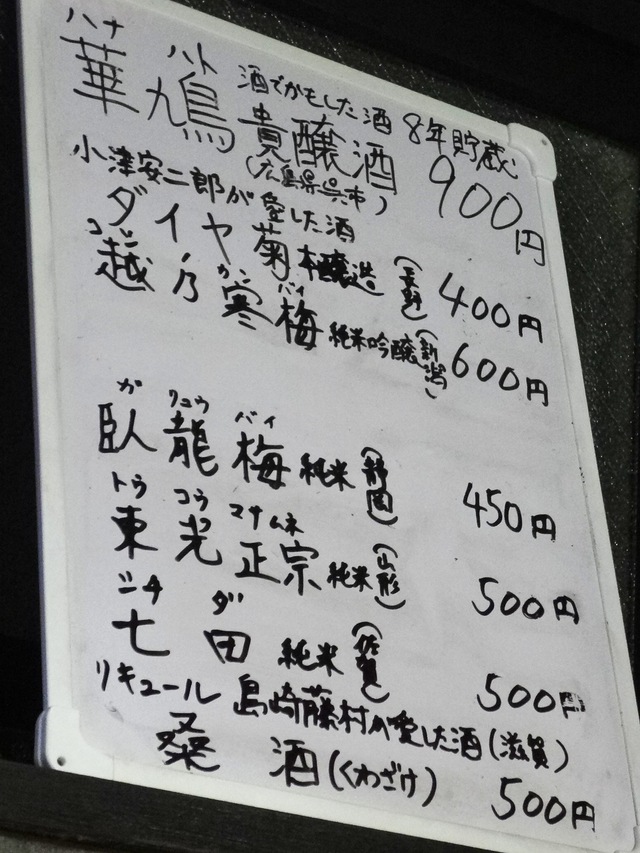 華鳩 貴醸酒 900円
ハナ ハト
酒でかもした酒 8年貯蔵
(広島県呉市)
小津安二郎が愛した酒
ダイヤ菊 本醸造 400円
越乃寒梅 純米吟醸(新潟) 600円
コシ かん バイ
臥龍梅 純米(静岡) 450円
が リュウ バイ
東光正宗 純米(山形) 500円
トウ コウ マサムネ
七田 純米(佐賀) 500円
シチ ダ
リキュール 島崎藤村が愛した酒(滋賀)
桑酒(くわざけ) 500円